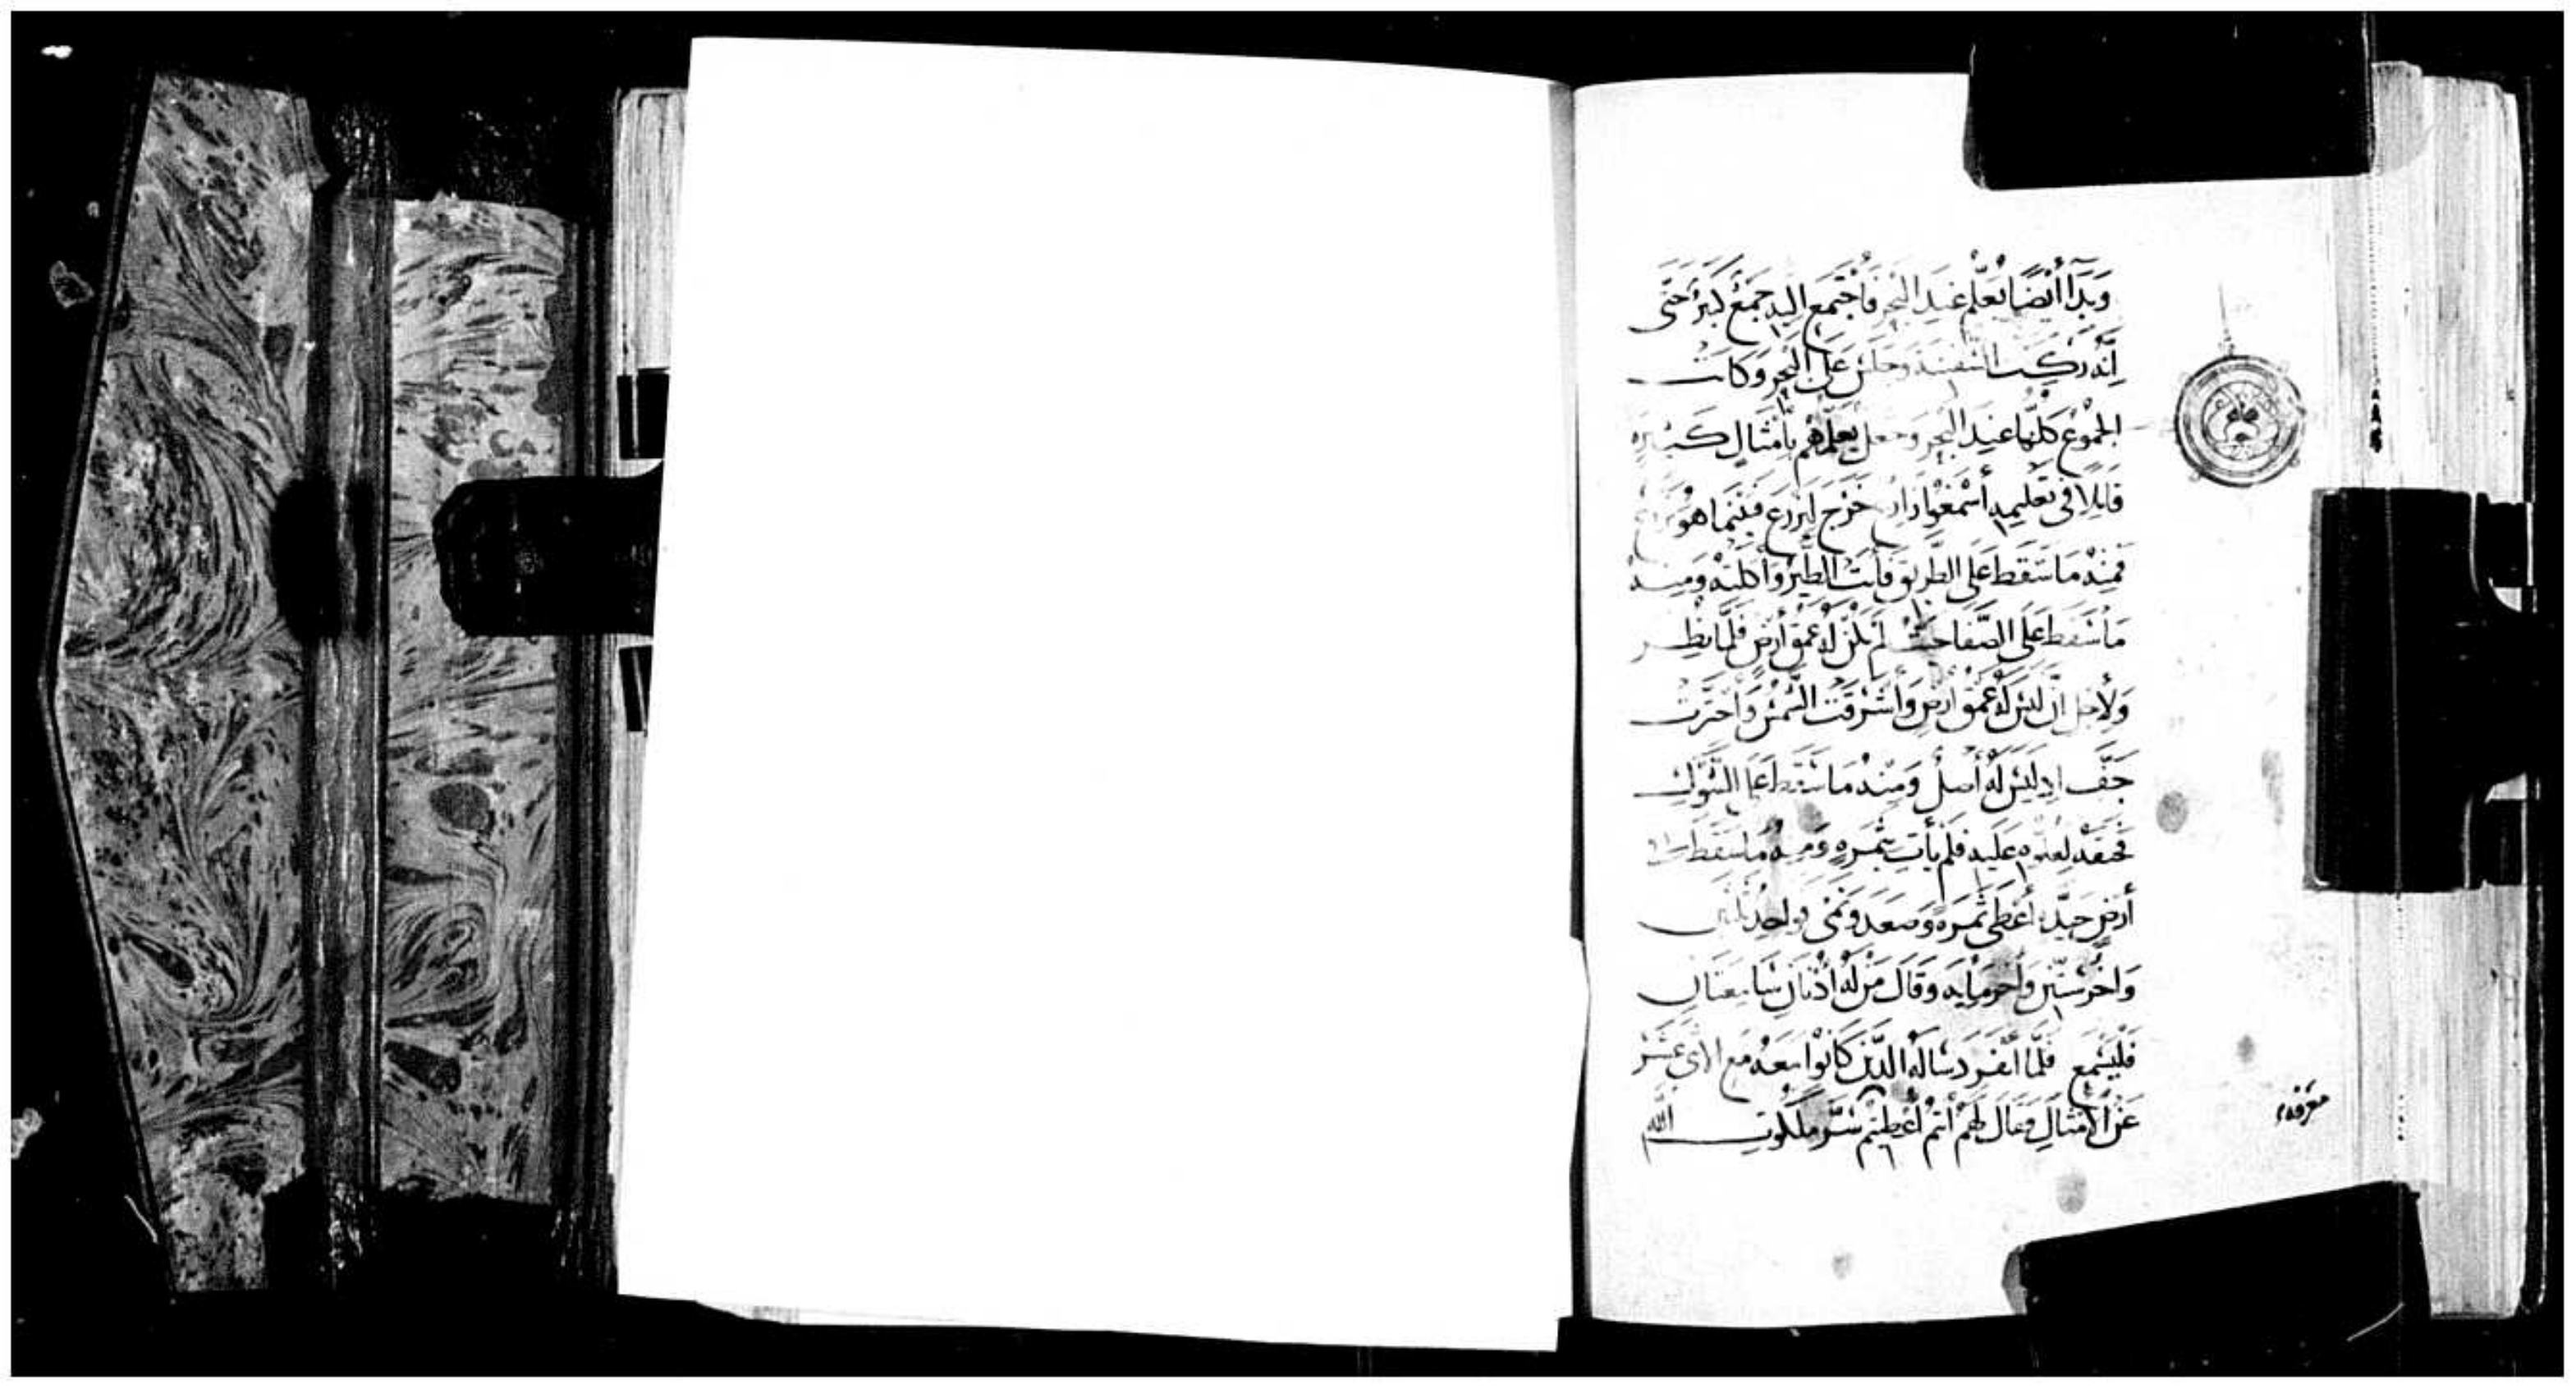 وَبَدَأَ أَيْضًا يُعَلِّمُ عِنْدَ الْبَحْرِ فَاجْتَمَعَ إِلَيْهِ جَمْعٌ كَبِيرٌ حَتَّى
إِنَّهُ رَكِبَ السَّفِينَةَ وَجَلَسَ عَلَى الْبَحْرِ وَكَانَتْ
الْجُمُوعُ كُلُّهَا عِنْدَ الْبَحْرِ وَجَعَلَ يُعَلِّمُهُمْ بِأَمْثَالٍ كَثِيرَةٍ
قَايِلًا فِي تَعْلِيمِهِ أَسْمَعُوا زَارِعٌ خَرَجَ لِيَزْرَعَ فَبَيْنَمَا هُوَ يزرع
فَمِنْهُ مَا سَقَطَ عَلَى الطَّرِيقِ فَأَتَتِ الطَّيْرُ وَأَكَلَتْهُ وَمِنْهُ
مَا سَقَطَ عَلَى الصَّفَا حَيْثُ لَمْ يَكُنْ لَهُ عُمْقُ أَرْضٍ فَلَمَّا
وَلِأَجْلِ أَنْ لَيْسَ لَهُ عُمْقُ أَرْضٍ وَأَشْرَقَتِ الشَّمْسُ وَأَحْتَرَّتْ
جَفَّ اذ لَيْسَ لَهُ أَصْلٌ وَمِنْهُ مَا سَقَطَ عَلَى الشَّوْكِ
فَخَنَقَهُ عَلَيْهِ فَلَمْ يَأْتِ بِثَمَرِهِ وَمِنْهُ مَا سَقَطَ
أَرْضٍ جَيِّدَة أَعْطَى ثَمَرَةً وَصَعَدَ وَنَمَى وَاحِدٌ ثلثين
وَاخَرُ سِتِّينَ وَاخَرُ مِايَه وَقَالَ مَنْ لَهُ أُذْنَانِ سَامِعَتَانِ
فَلْيَسْمَعْ فَلَمَّا أَنْفَرَدَ سَالَهُ الَّذِينَ كَانُوا مَعَهُ مَعَ الاثنى عَشَرَ
عَنْ الْأَمْثَالِ فَقَالَ لَهُمْ أَنْتُمْ أُعْطِيتُمْ سِرَّ مَلَكُوتِ اللَّهِ
مَعْرِفَة